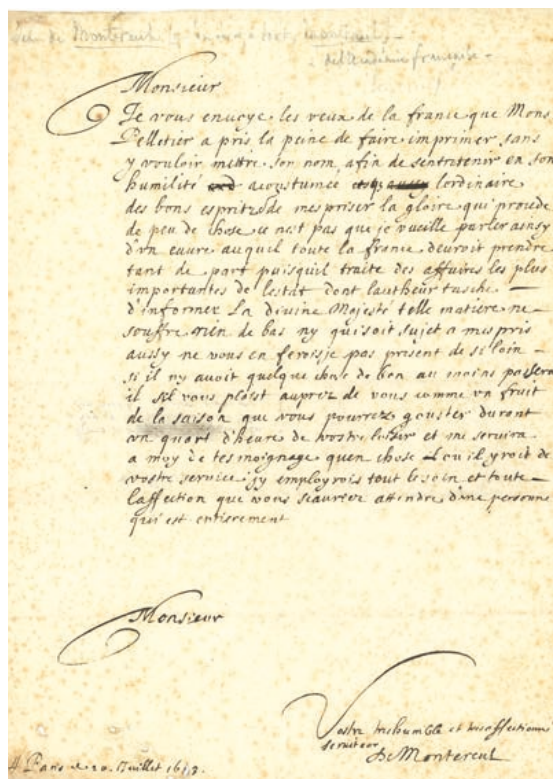 Jean de Montereul
de l'académie française -
Monsieur
Je vous envoye les veux de la france que Mons
Pelletier a pris la peine de faire imprimer sans
y vouloir mettre son nom, afin de sentretenir en son
humilité acoustumée lordinaire
des bons espritz de mespriser la gloire qui procede
de peu de chose, ce nest pas que je vueille parler ainsy
d'vn euure auquel toute la france deuroit prendre
tant de part puisquil traite des affaires les plus
importantes de lestat dont lautheur tasche
d'informer La divine Majesté telle matiere ne
souffre rien de bas ny qui soit sujet a mespris
aussy ne vous en feroisje pas present de si loin
si il ny avoit quelque chose de bon au moins passera
il sil vous plaist auprez de vous comme vn fruit
de la saison que vous pourrez gouster durant
vn quart d'heure de vostre loisir et me servira
a moy de tesmoignage quen chose ou il yroit de
vostre service jy employrois tout le soin et toute
laffection que vous scauriez attendre d'vne personne
qui est entierement
Monsieur
Vostre treshumble et tresaffectionné
serviteur
De Montereul
A Paris ce 20 Juillet